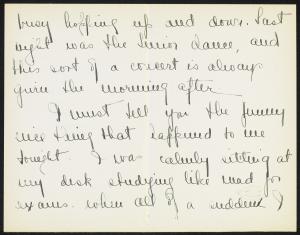 busy hopping up and down. Last
night was the Junior dance, and
this sort of a concert is always
given the morning after.
I must tell you the funny
nice thing that happened to me
tonight. I was calmly sitting at
my desk studying like mad for
exams. when all of a sudden I